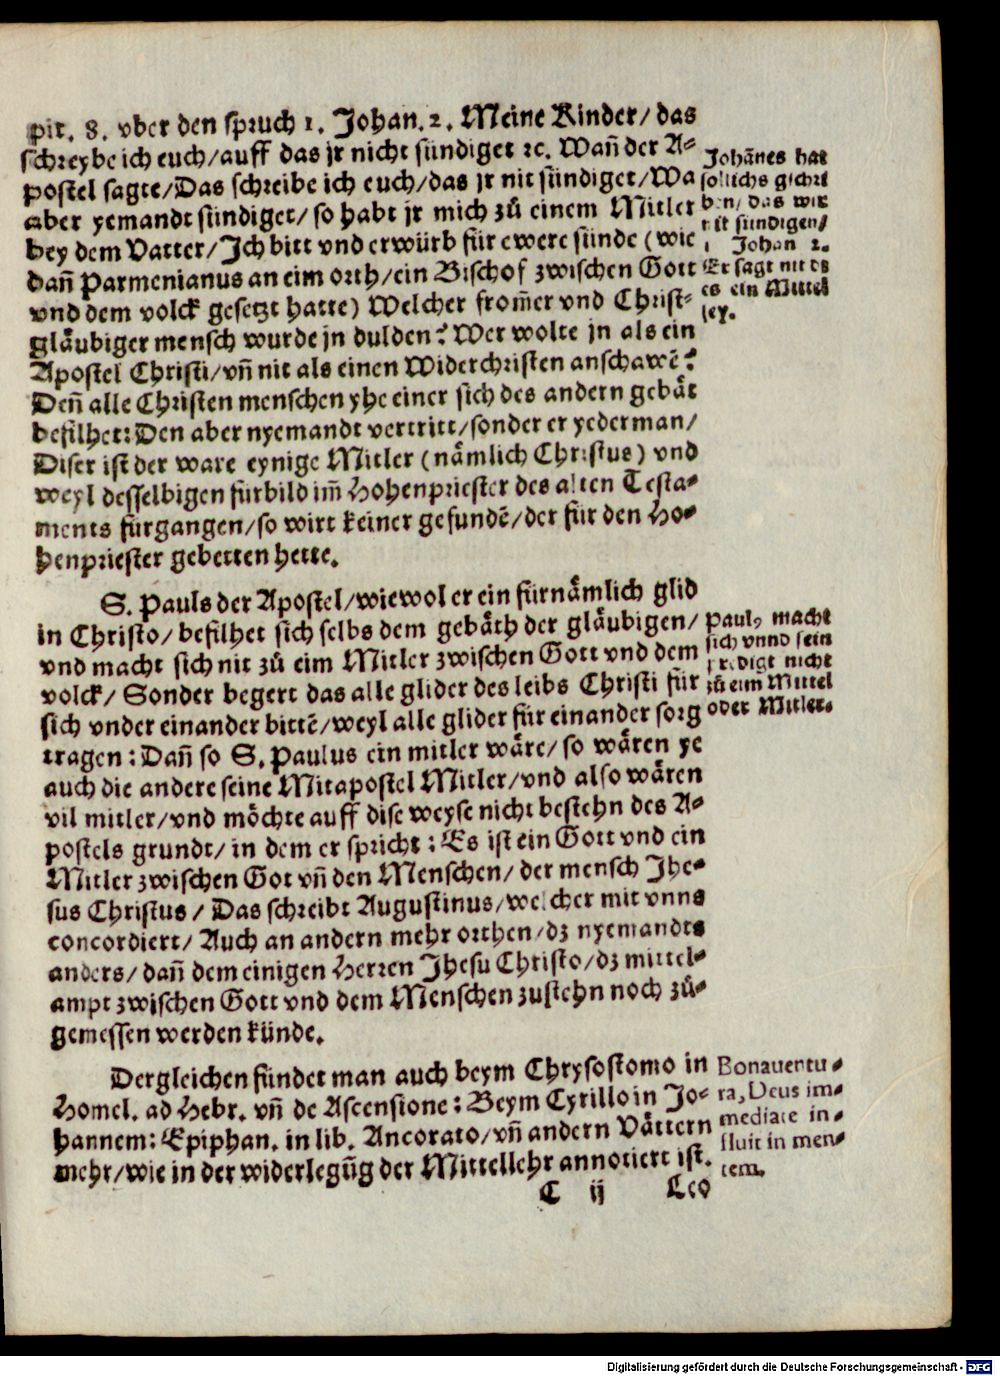 pit. 8. vber den spruch 1. Johan. 2. Meine Kinder/ das
schreybe ich euch/auff das jr nicht sündiget ꝛc. Wañ der A⸗
postel sagte/Das schreibe ich euch/das jr nit sündiget/Wa
aber yemandt sündiget/ so habt jr mich zů einem Mitler
bey dem Vatter/Ich bitt vnd erwürb für ewere sünde (wie
dañ Parmenianus an eim orth/ein Bischof zwischen Gott
vnd dem volck gesetzt hatte) Welcher from̃er vnd Christ⸗
glåubiger mensch wurde jn dulden? Wer wolte jn als ein
Apostel Christi/vñ nit als einen Widerchristen anschawẽ?
Deñ alle Christen menschen yhe einer sich des andern gebåt
befilhet: Den aber nyemandt vertritt/sonder er yederman/
Diser ist der ware eynige Mitler (nåmlich Christus) vnd
weyl desselbigen fürbild im̃ Hohenpriester des alten Testa⸗
ments fürgangen/so wirt keiner gefundẽ/der für den Ho⸗
henpriester gebetten hette.
Johãnes hat
sollichs gschri
ben/ das wir
nit sündigen/
1 Johan 2.
Er sagt nit dz
es ein Mittel
sey.
S. Pauls der Apostel/wiewol er ein fürnåmlich glid
in Christo/ befilhet sich selbs dem gebåth der glåubigen/
vnd macht sich nit zů eim Mitler zwischen Gott vnd dem
volck/ Sonder begert das alle glider des leibs Christi für
sich vnder einander bittẽ/weyl alle glider für einander sorg
tragen: Dañ so S. Paulus ein mitler wåre/ so wåren ye
auch die andere seine Mitapostel Mitler/vnd also wåren
vil mitler/vnd möchte auff dise weyse nicht bestehn des A⸗
postels grundt/ in dem er spricht: Es ist ein Gott vnd ein
Mitler zwischen Got vñ den Menschen/ der mensch Jhe⸗
sus Christus / Das schreibt Augustinus/welcher mit vnns
concordiert/ Auch an andern mehr orthen/dz nyemandts
anders/ dañ dem einigen Herren Jhesu Christo/dz mittel⸗
ampt zwischen Gott vnd dem Menschen zustehn noch zů⸗
gemessen werden künde.
Paul9 macht
sich vnnd sein
predigt nicht
zů eim Mittel
oder Mitler.
Dergleichen fündet man auch beym Chrysostomo in
Homel. ad Hebr. vñ de Ascensione: Beym Cyrillo in Jo⸗
hannem: Epiphan. in lib. Ancorato/vñ andern Våttern
mehr/wie in der widerlegũg der Mittellehr annotiert ist.
Bonauentu⸗
ra, Deus im⸗
mediate in⸗
fluit in men⸗
tem.
C ij Leo
Digitalisierung gefördert durch die Deutsche Forschungsgemeinschaft - DFG